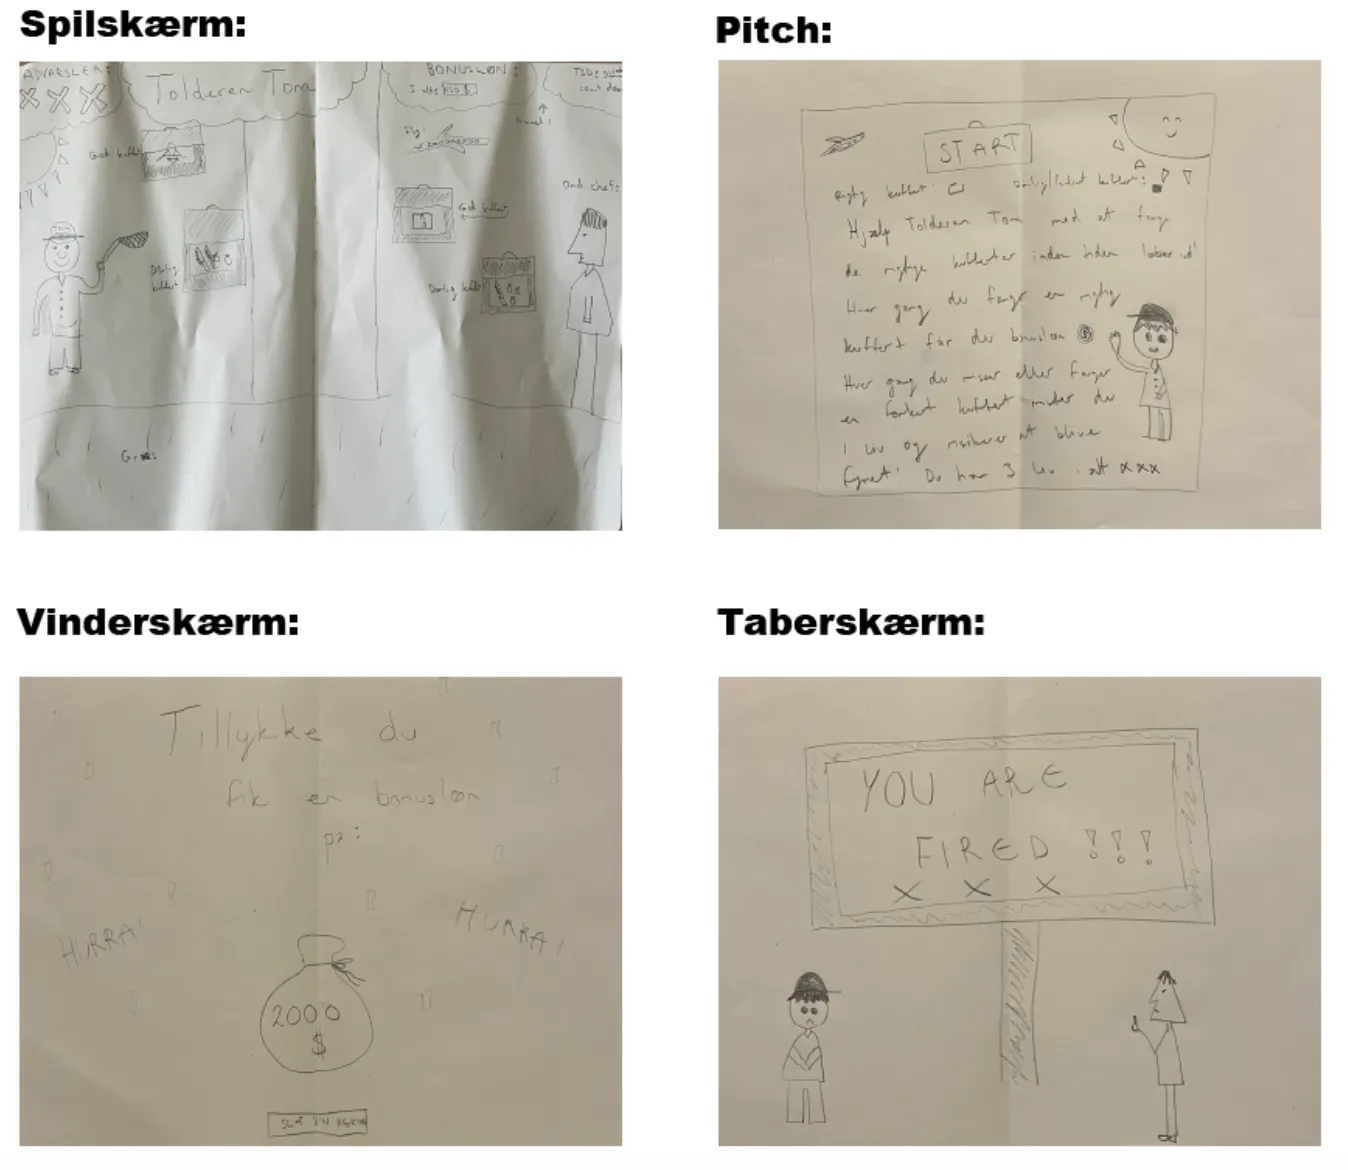 Spilskærm:
ADVARSLER:
XXX
Tolderen Tom
BONUSLØN:
I alt: 
TID:
God kuffert
Fly!
Ond chef:
TOM
God kuffert
Dårlig kuffert
Dårlig kuffert
Græs
Pitch:
START
Rigtig kuffert: Dårlig/forkert kuffert:
Hjælp Tolderen Tom med at fange
de rigtige kufferter inden tiden løber ud!
Hver gang du fanger en rigtig
kuffert får du bonusløn
Hver gang du misser eller fanger
en forkert kuffert mister du
1 liv og risikerer at blive
fyret! Du har 3 liv i alt xxx
Vinderskærm:
Tillykke du
fik en bonusløn
på:
HURRA!
HURRA!
2000
$
Taberskærm:
YOU ARE
FIRED !!!
X X X